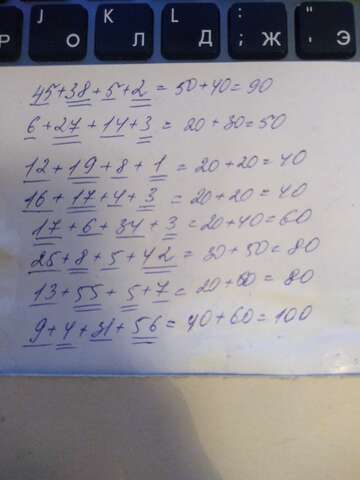 P J O K Л L Д : ; Ж " ' Э
45+38+5+2=50+40=90
6+27+14+3=20+30=50
12+19+8+1=20+20=40
16+17+4+3=20+20=40
17+6+34+3=20+40=60
25+8+5+42=30+50=80
13+55+5+7=20+60=80
9+4+31+56=40+60=100